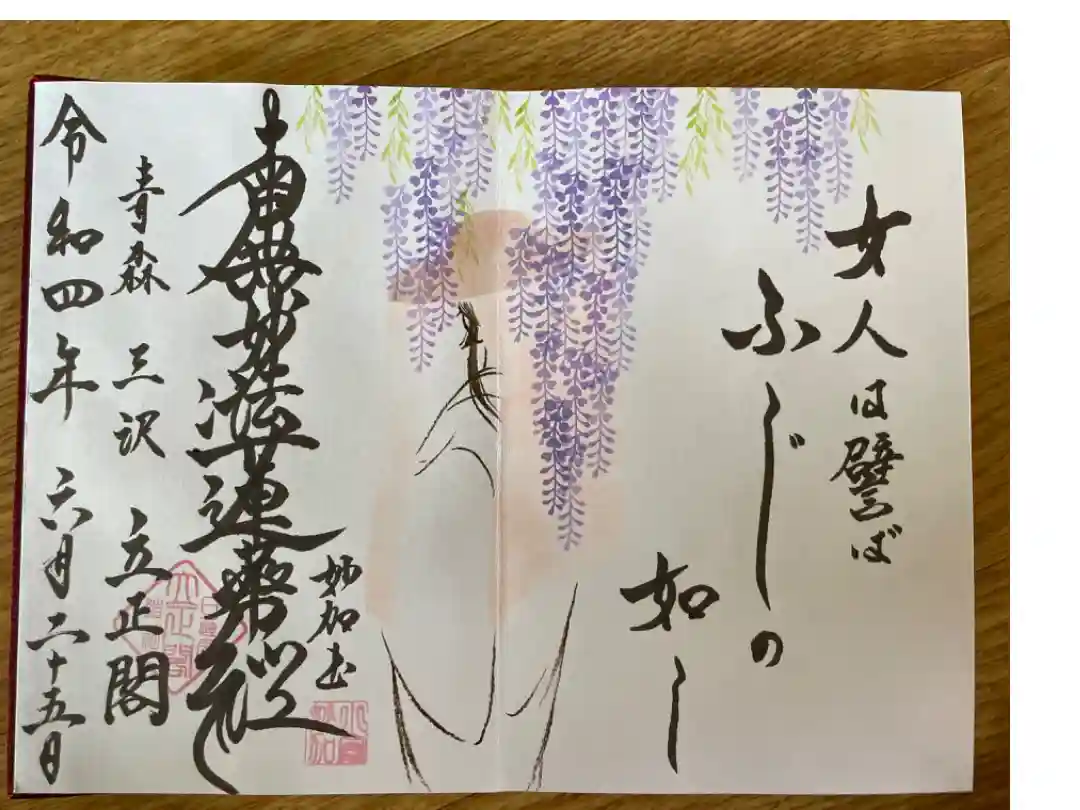 女人は譬ば
ふじの
如し
妙加書
南無妙法蓮華経
青森 三沢 立正閣
令和四年 六月二十五日